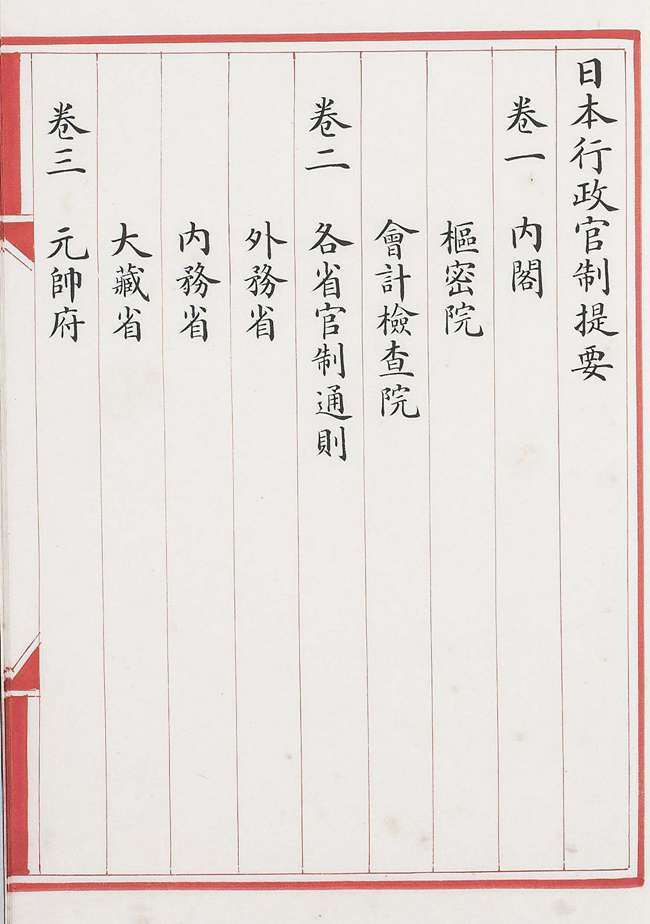 日本行政官制提要
卷一　內閣
樞密院
會計檢查院
卷二　各省官制通則
外務省
內務省
大藏省
卷三　元帥府